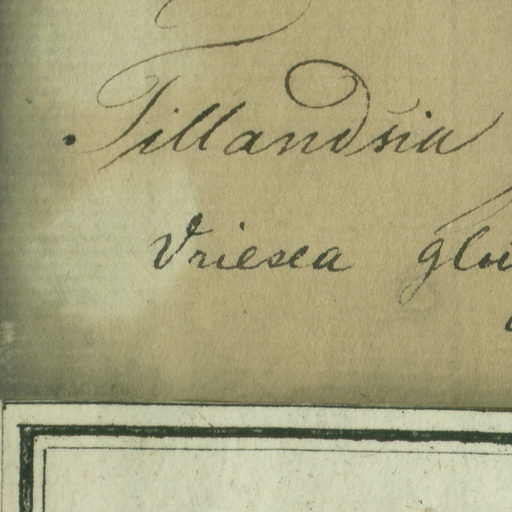 Tillandsia
Vriesea